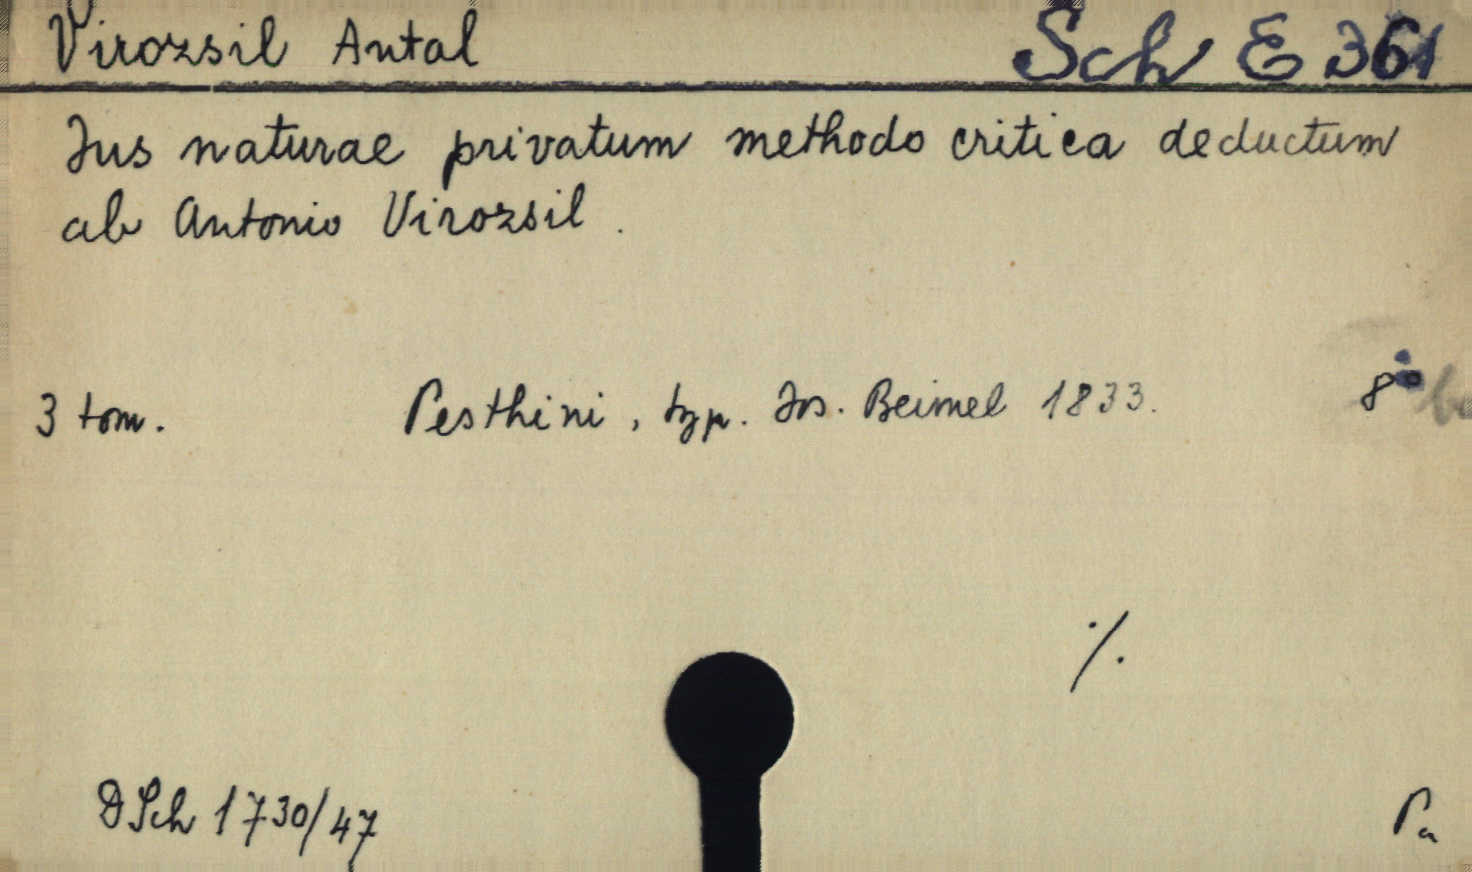 Virozsil Antal Sch E 361
Jus naturae privatum methodo critica deductum
ab Antonio Virozsil.
3 tom. Pesthini, typ. Jos. Beimel 1833. 8°
./.
DSch 1730/47 Pa